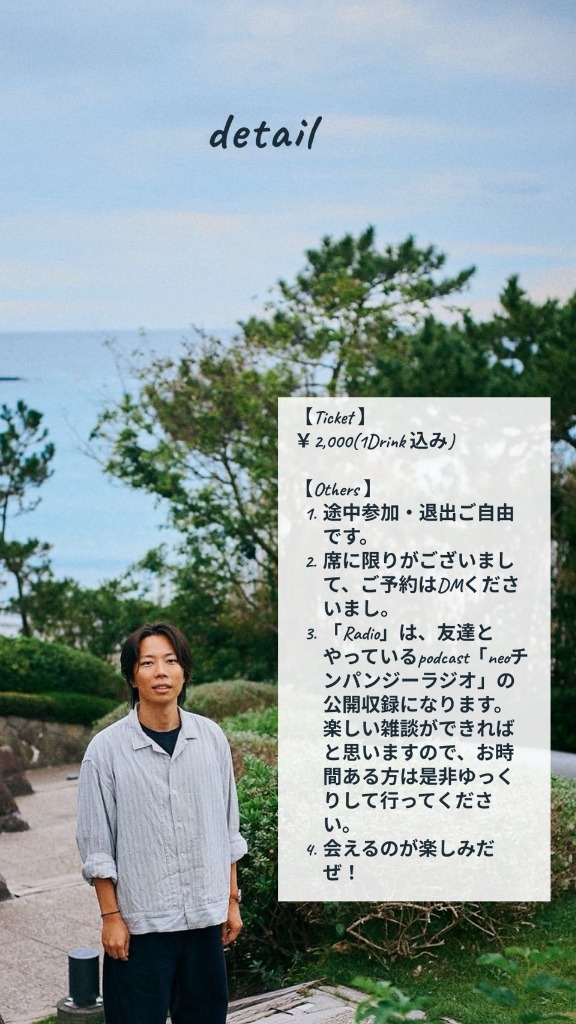 detail
【Ticket】
￥2,000(1Drink込み)
【Others】
1. 途中参加・退出ご自由
です。
2. 席に限りがございまし
て、ご予約はDMくださ
いまし。
3. 「Radio」は、友達と
やっているpodcast「neoチ
ンパンジーラジオ」の
公開収録になります。
楽しい雑談ができれば
と思いますので、お時
間ある方は是非ゆっく
りして行ってくださ
い。
4. 会えるのが楽しみだ
ぜ！